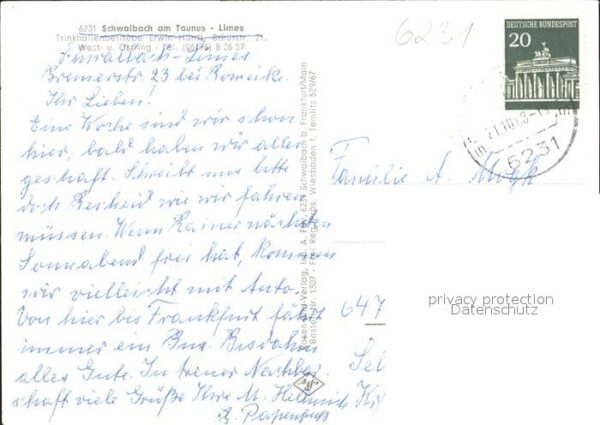 6231 Schwalbach am Taunus - Limes
Trinkhallenbetriebe Erwin Hardt, Schulstr. 21,
West- u. Ostring - Tel. (06196) 8 26 57
Schwalbach-Limes
Bremerstr. 23 bei Romeike
Ihr Lieben!
Eine Woche sind wir schon
hier, bald haben wir alles
geschafft. Schreibt uns bitte
doch Bescheid wie wir fahren
müssen. Wenn Rainer nächsten
Sonnabend frei hat, kommen
wir vielleicht mit Auto.
Von hier bis Frankfurt fährt
immer ein Bus. Bis dahin
alles Gute. In treuer Nachbar-
schaft viele Grüße Ihre M. Heinrich
Papenfuß
Rosenland-Verlag, Inh. A. 6231 Schwalbach b. Frankfurt/Main
Bestell-Nr. 1307 - Frei Reg. Präs. Wiesbaden f. Temlitz 529/67
6231
DEUTSCHE BUNDESPOST
20
6231
Familie A. Mogk
647
Sel
privacy protection
Datenschutz